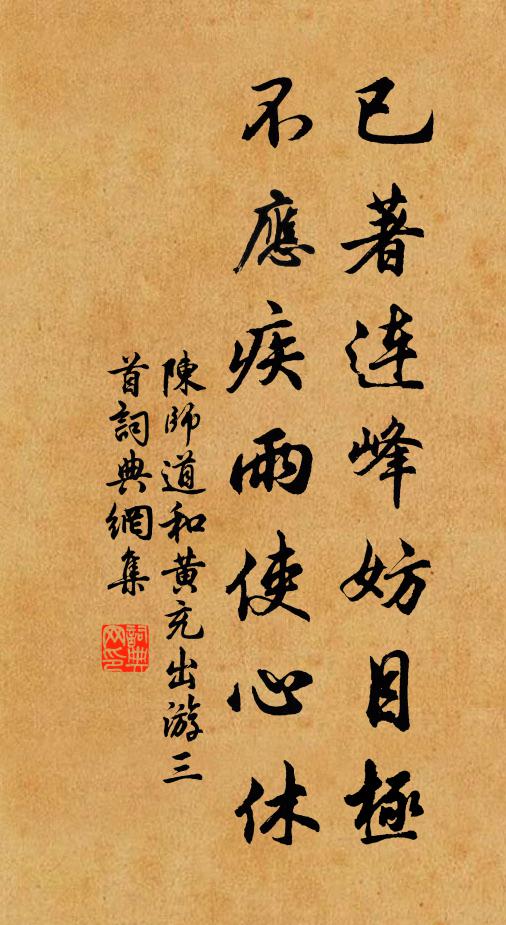 已著連峰妨目極
不應疾雨使心休
陳師道和黃充出游三
首詞典網集
詞典
网印